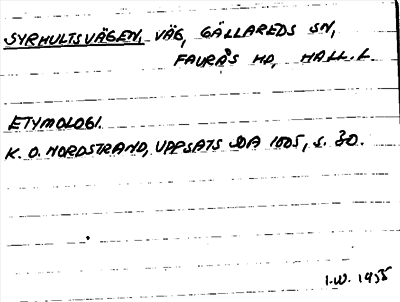 SYRHULTSVÄGEN, VÄG, GÄLLAREDS SN,
FAURÅS HD, HALL.L.
ETYMOLOGI.
K. O. NORDSTRAND, UPPSATS DA 1005, S. 30.
I.W. 1955